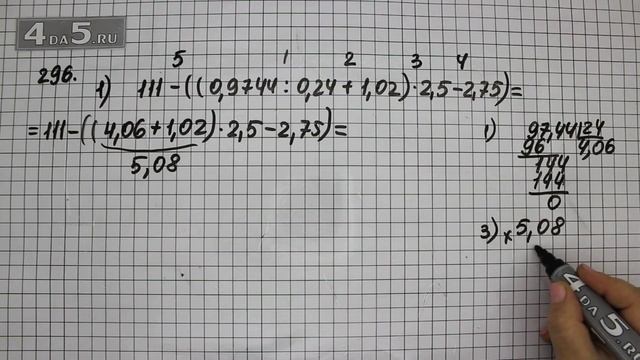 4DA5.RU
5 1 2 3 4
296. 1) 111 - ((0,9744 : 0,24 + 1,02) · 2,5 - 2,75) =
= 111 - ((4,06 + 1,02) · 2,5 - 2,75) =
5,08
1) 97,44 | 24
96 4,06
144
144
0
3) × 5,08
4DA5.RU